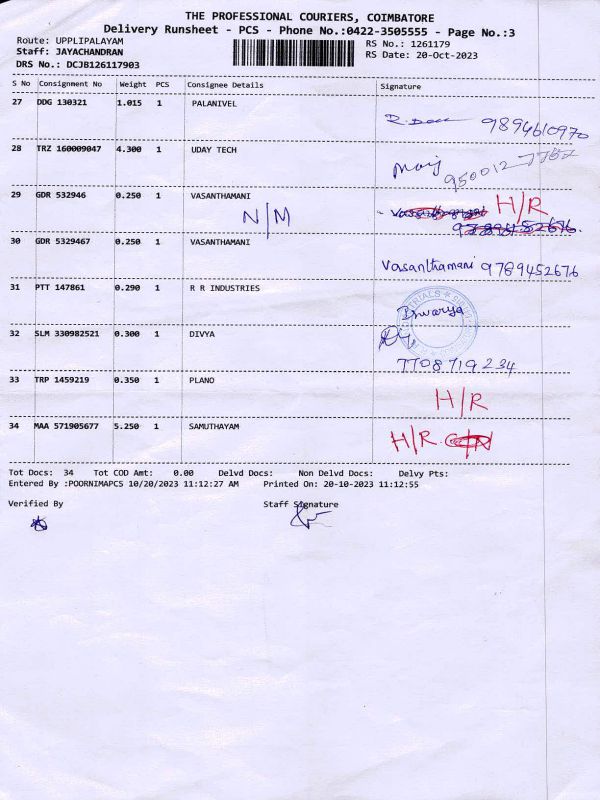 THE PROFESSIONAL COURIERS, COIMBATORE
Delivery Runsheet - PCS - Phone No.:0422-3505555 - Page No.:3
Route: UPPLIPALAYAM
RS No.: 1261179
Staff: JAYACHANDRAN
RS Date: 20-Oct-2023
DRS No.: DCJB126117903
S No Consignment No Weight PCS Consignee Details Signature
27 DDG 130321 1.015 1 PALANIVEL
9894610970
28 TRZ 160009047 4.300 1 UDAY TECH
29 GDR 532946 0.250 1 VASANTHAMANI
N/M H/R
30 GDR 5329467 0.250 1 VASANTHAMANI
Vasanthamani 9789452676
31 PTT 147861 0.290 1 R R INDUSTRIES
32 SLM 330982521 0.300 1 DIVYA
7708719234
33 TRP 1459219 0.350 1 PLANO
H/R
34 MAA 571905677 5.250 1 SAMUTHAYAM
H/R
Tot Docs: 34 Tot COD Amt: 0.00 Delvd Docs: Non Delvd Docs: Delvy Pts:
Entered By :POORNIMAPCS 10/20/2023 11:12:27 AM Printed On: 20-10-2023 11:12:55
Verified By Staff Signature